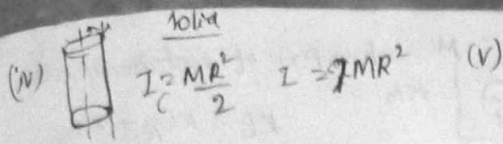 Solid
(iv) I_C = MR²/2 I = 7MR² (V)